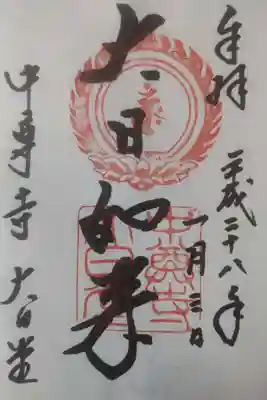 奉拝 平成二十八年
一月三日
大日如来
中尊寺 大日堂